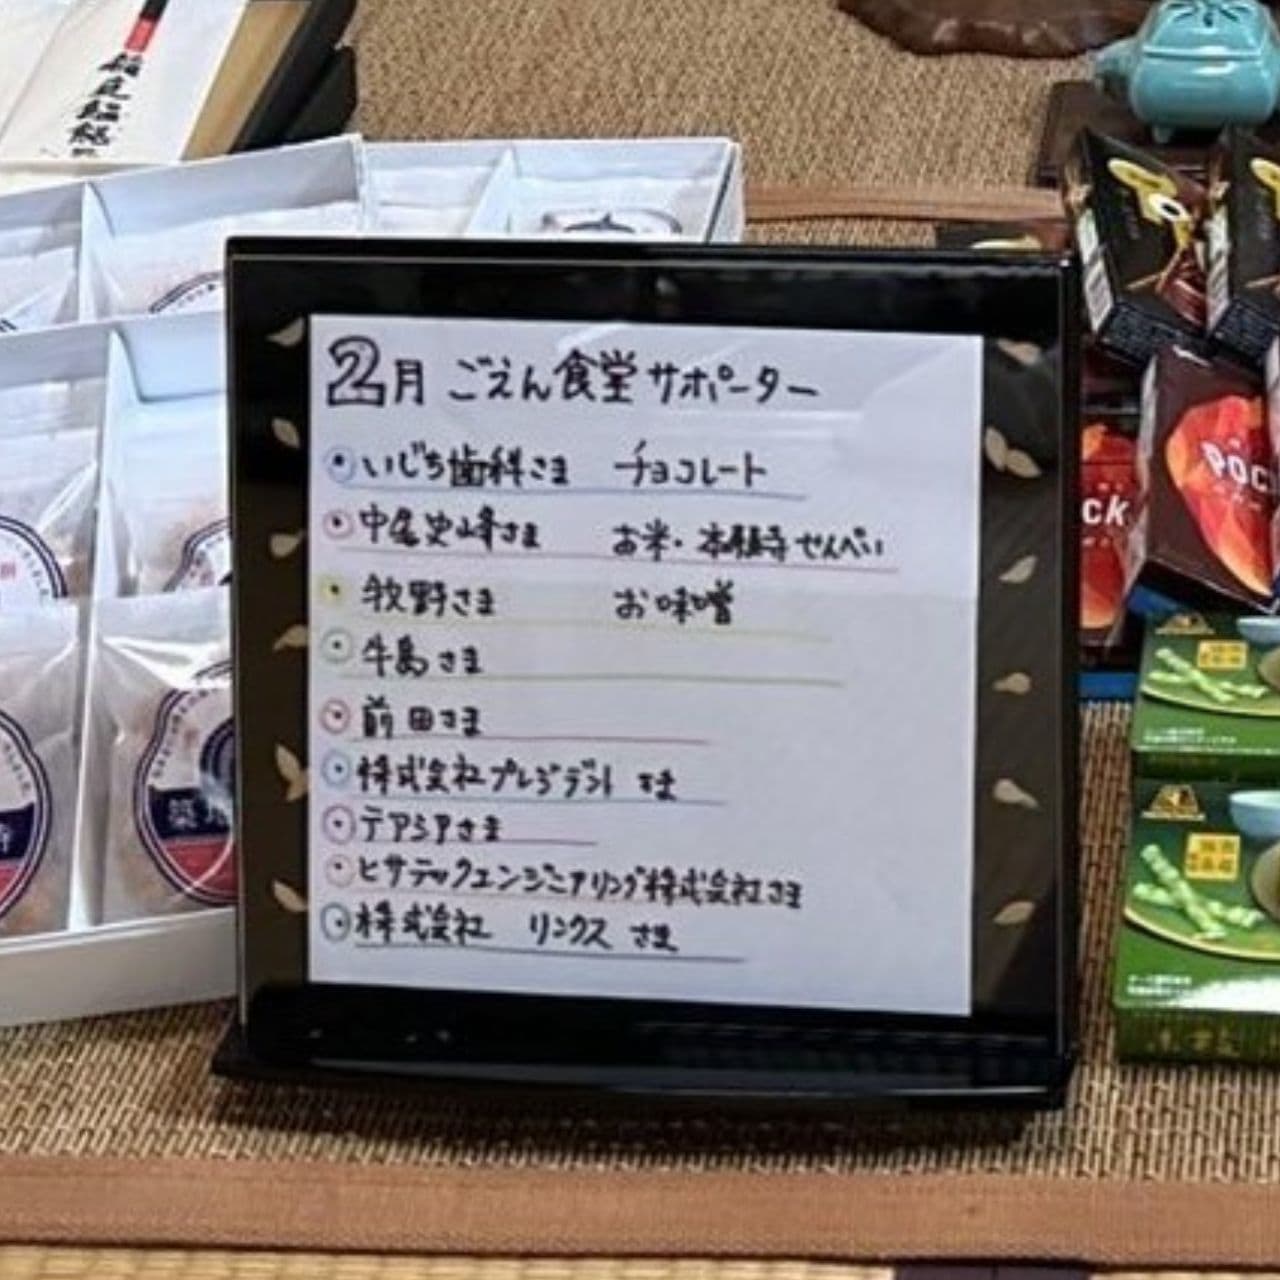 2月 ごえん食堂サポーター
いじち歯科さま チョコレート
中尾史峰さま お米・本願寺せんべい
牧野さま お味噌
牛島さま
前田さま
株式会社プレジデント さま
テアシアさま
ヒサテックエンジニアリング株式会社さま
株式会社 リンクス さま
築地
POC
ck